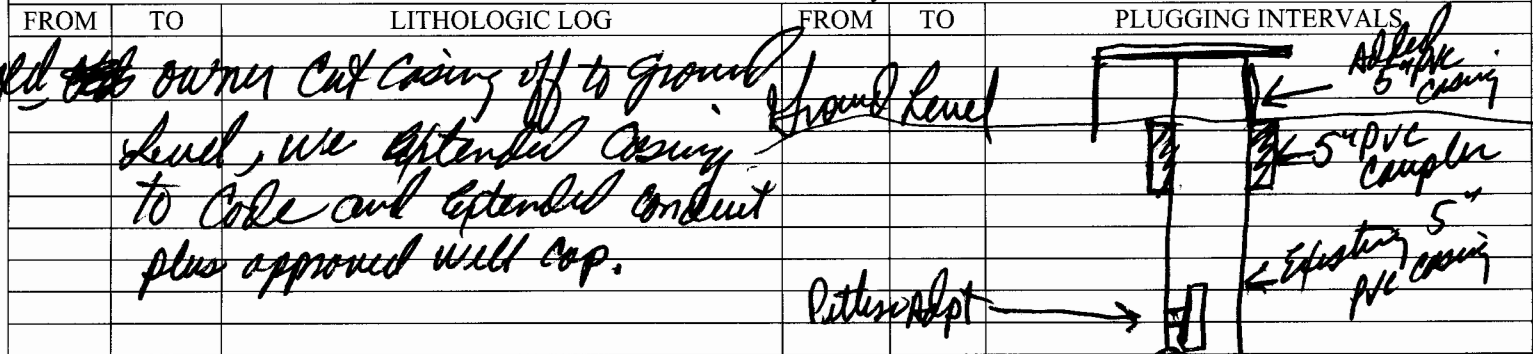 FROM TO LITHOLOGIC LOG FROM TO PLUGGING INTERVALS
old owner Cut Casing off to Ground
Level, we extended Casing
to Code and extended conduit
plus approved well cap.
Ground Level
Added
5" PVC
casing
5" PVC
Coupler
Existing 5"
PVC casing
Pitless Adpt